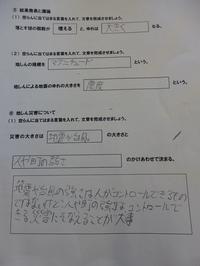 ③ 結果発表と議論
(1) 空らんに当てはまる言葉を入れて、文章を完成させましょう。
落とす球の個数が 増える と、ゆれは 大きく なる。
(2) 空らんに当てはまる言葉を入れて、文章を完成させましょう。
地しんの規模を マグニチュード という。
地しんによる地面のゆれの大きさを 震度 という。
④ 地しん災害について
(1) 空らんに当てはまる言葉を入れて、文章を完成させましょう。
災害の大きさは 地震や台風 の大きさと
人や町の強さ のかけあわせで決まる。
地震や台風の強さは人がコントロールできるもの
ではないけど、人や町の強さはコントロールで
きる。災害にそなえることが大事